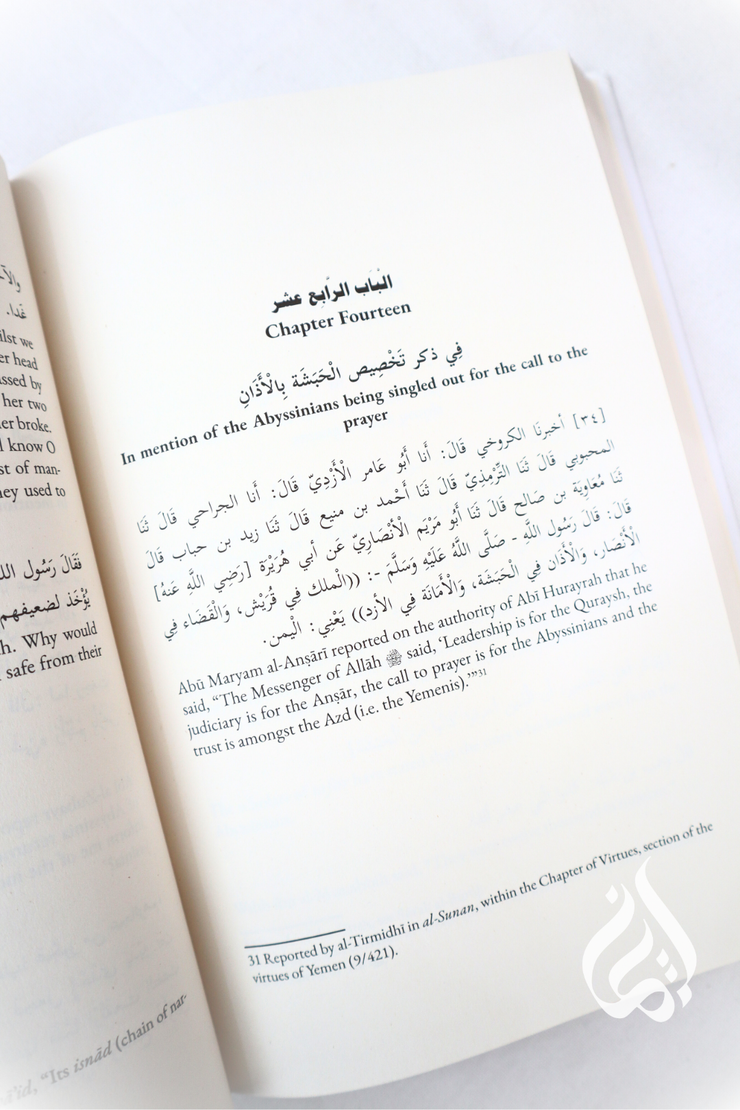 والآخ
غدا.
ilst we
er head
ssed by
her two
er broke.
I know O
st of man-
hey used to
فَقَالَ رَسُول الله
يُؤْخَذ لضعيفهم
h. Why would
safe from their
"Its isnād (chain of nar-
الْبَاب الرَّابِع عشر
Chapter Fourteen
فِي ذكر تَخْصِيص الْحَبَشَة بِالْأَذَانِ
In mention of the Abyssinians being singled out for the call to the
prayer
[٣٤] أخبرنَا الكروخي قَالَ: أَنا أَبُو عَامر الْأَزْدِيّ قَالَ: أَنا الجراحي قَالَ ثَنَا
المحبوبي قَالَ ثَنَا التِّرْمِذِيّ قَالَ ثَنَا أَحْمد بن منيع قَالَ ثَنَا زيد بن حباب قَالَ
ثَنَا مُعَاوِيَة بن صَالح قَالَ ثَنَا أَبُو مَرْيَم الْأنْصَارِيّ عَن أبي هُرَيْرَة [رَضِي اللَّهُ عَنهُ]
قَالَ: قَالَ رَسُول اللَّهِ - صَلَّى اللَّهُ عَلَيْهِ وَسَلَّمَ -: ((الْملك فِي قُرَيْش، وَالْقَضَاء فِي
الْأَنْصَار، وَالْأَذَان فِي الْحَبَشَة، وَالْأَمَانَة فِي الأزد)) يَعْنِي: الْيمن.
Abū Maryam al-Anṣārī reported on the authority of Abī Hurayrah that he
said, “The Messenger of Allāh ﷺ said, ‘Leadership is for the Quraysh, the
judiciary is for the Anṣār, the call to prayer is for the Abyssinians and the
trust is amongst the Azd (i.e. the Yemenis).’”31
31 Reported by al-Tirmidhī in al-Sunan, within the Chapter of Virtues, section of the
virtues of Yemen (9/421).